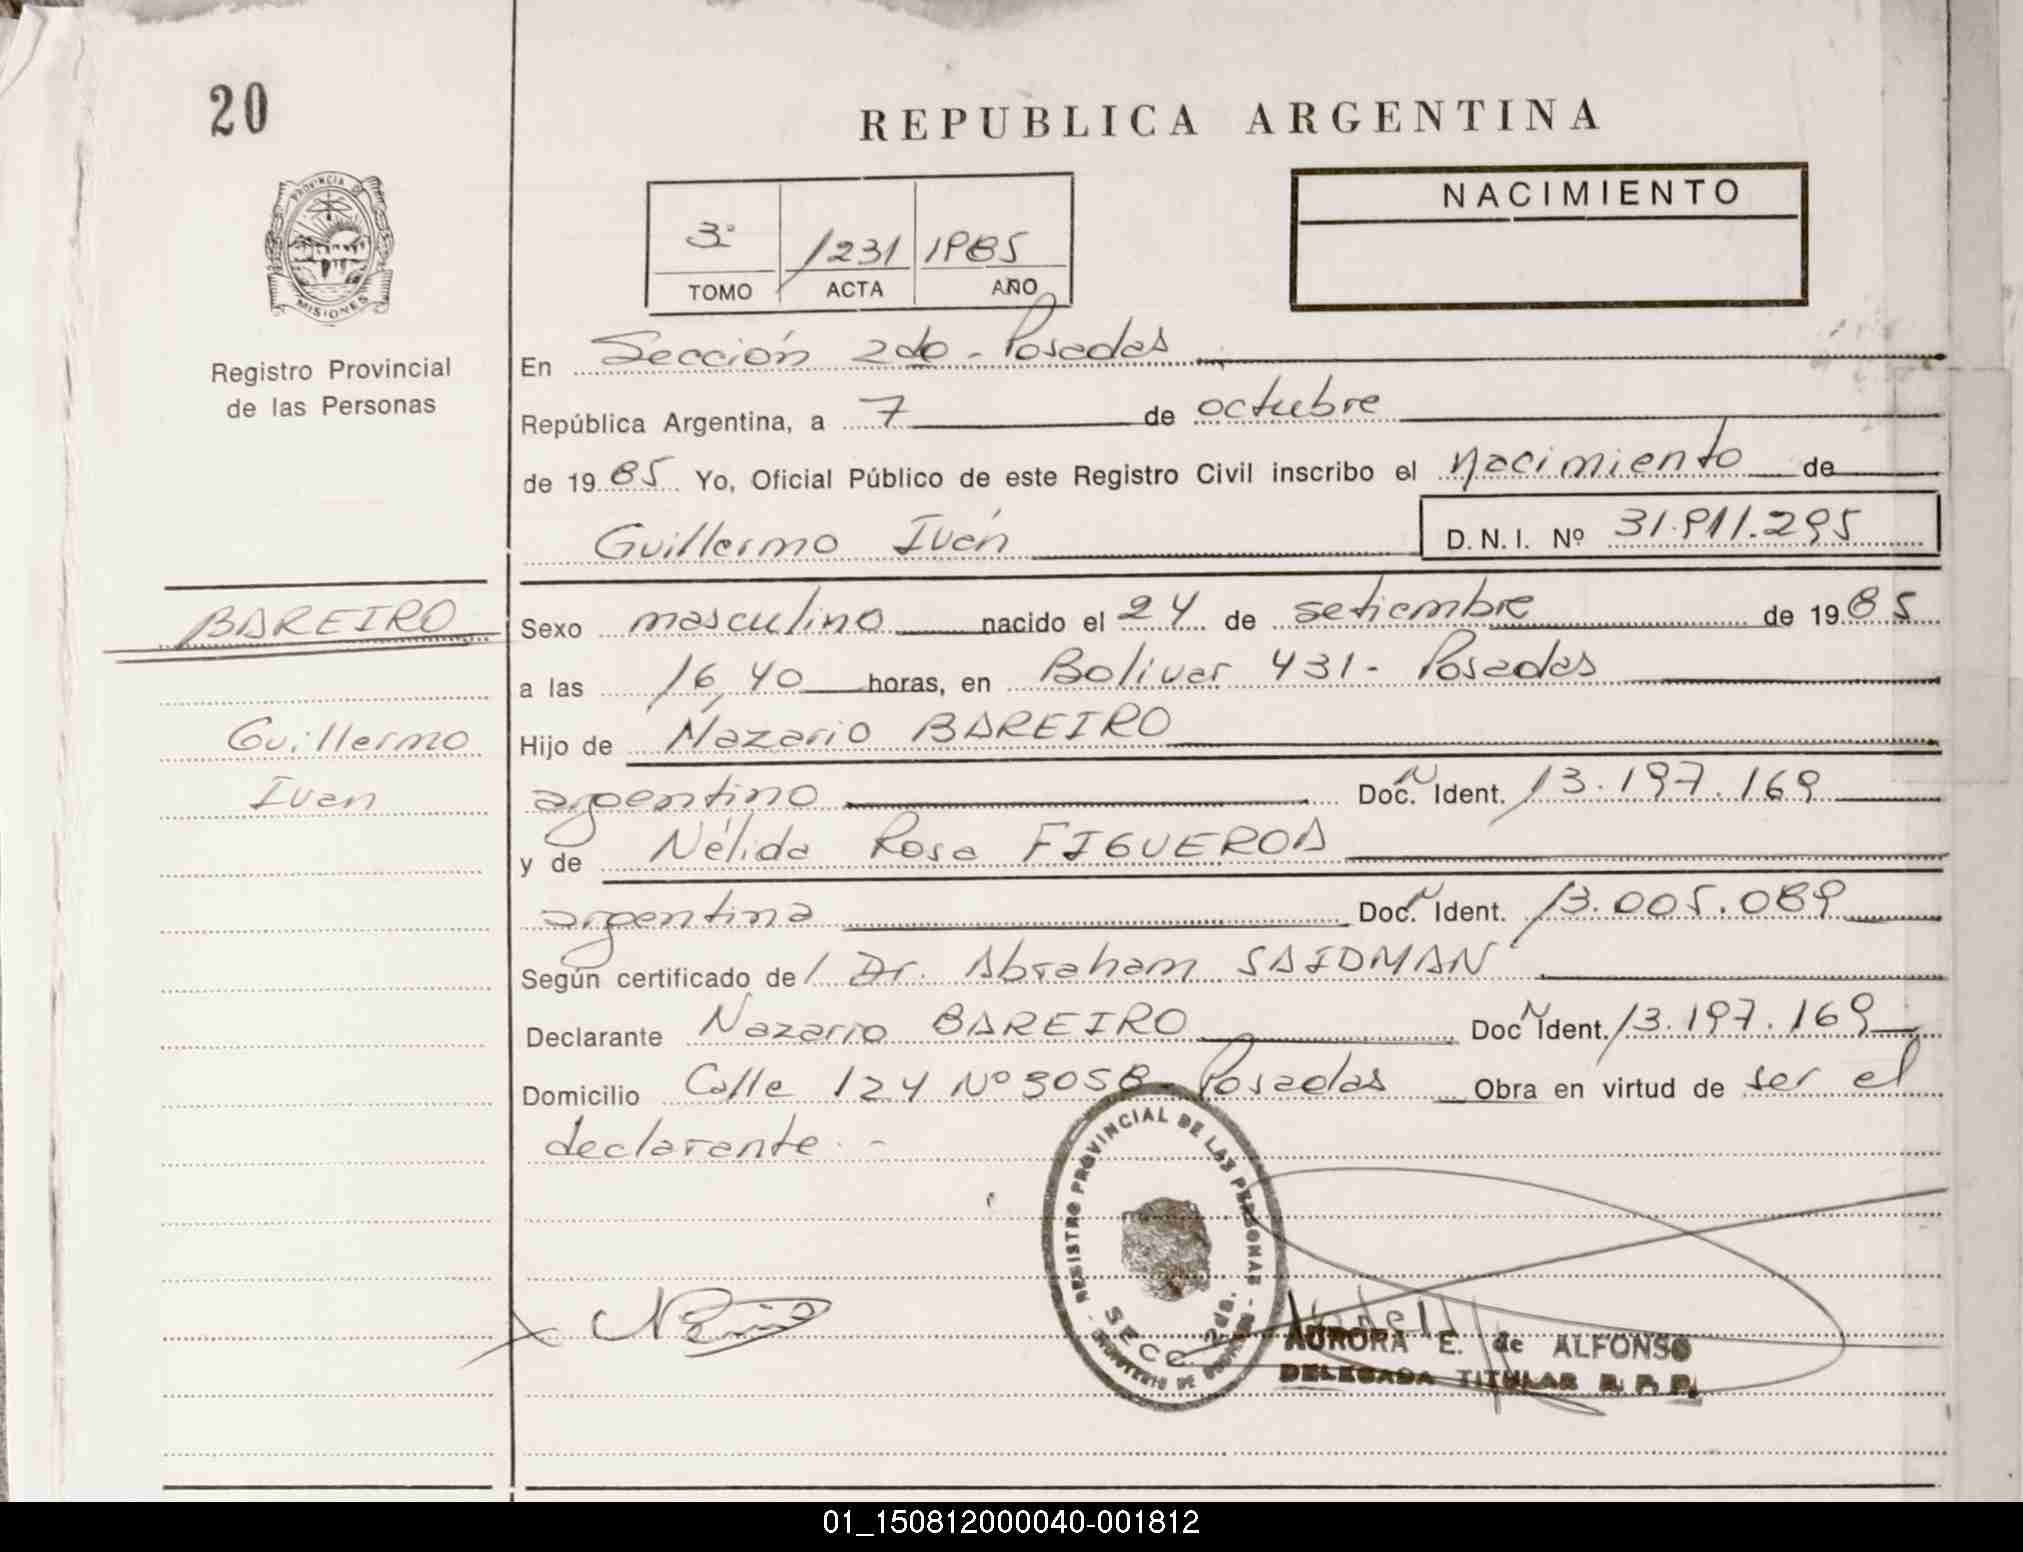 20
REPUBLICA ARGENTINA
PROVINCIA DE
MISIONES
Registro Provincial
de las Personas
3º /231 1985
TOMO ACTA AÑO
NACIMIENTO
En Sección 2da - Posadas
República Argentina, a 7 de octubre
de 1985 Yo, Oficial Público de este Registro Civil inscribo el nacimiento de
Guillermo Iván D.N.I. Nº 31.911.295
BAREIRO
Guillermo
Ivan
Sexo masculino nacido el 24 de setiembre de 1985
a las 16,40 horas, en Bolivar 431 - Posadas
Hijo de Nazario BAREIRO
argentino Doc. N Ident. 13.197.169
y de Nélida Rosa FIGUEROA
argentina Doc. N Ident. 13.005.089
Según certificado de / Dr. Abraham SAIDMAN
Declarante Nazario BAREIRO Doc N Ident. 13.197.169
Domicilio Calle 124 Nº 3058 - Posadas Obra en virtud de ser el
declarante. -
REGISTRO PROVINCIAL DE LAS PERSONAS
SECC. 2da.
MINISTERIO DE GOBIERNO
AURORA E. de ALFONSO
DELEGADA TITULAR R. P. P.
01_150812000040-001812